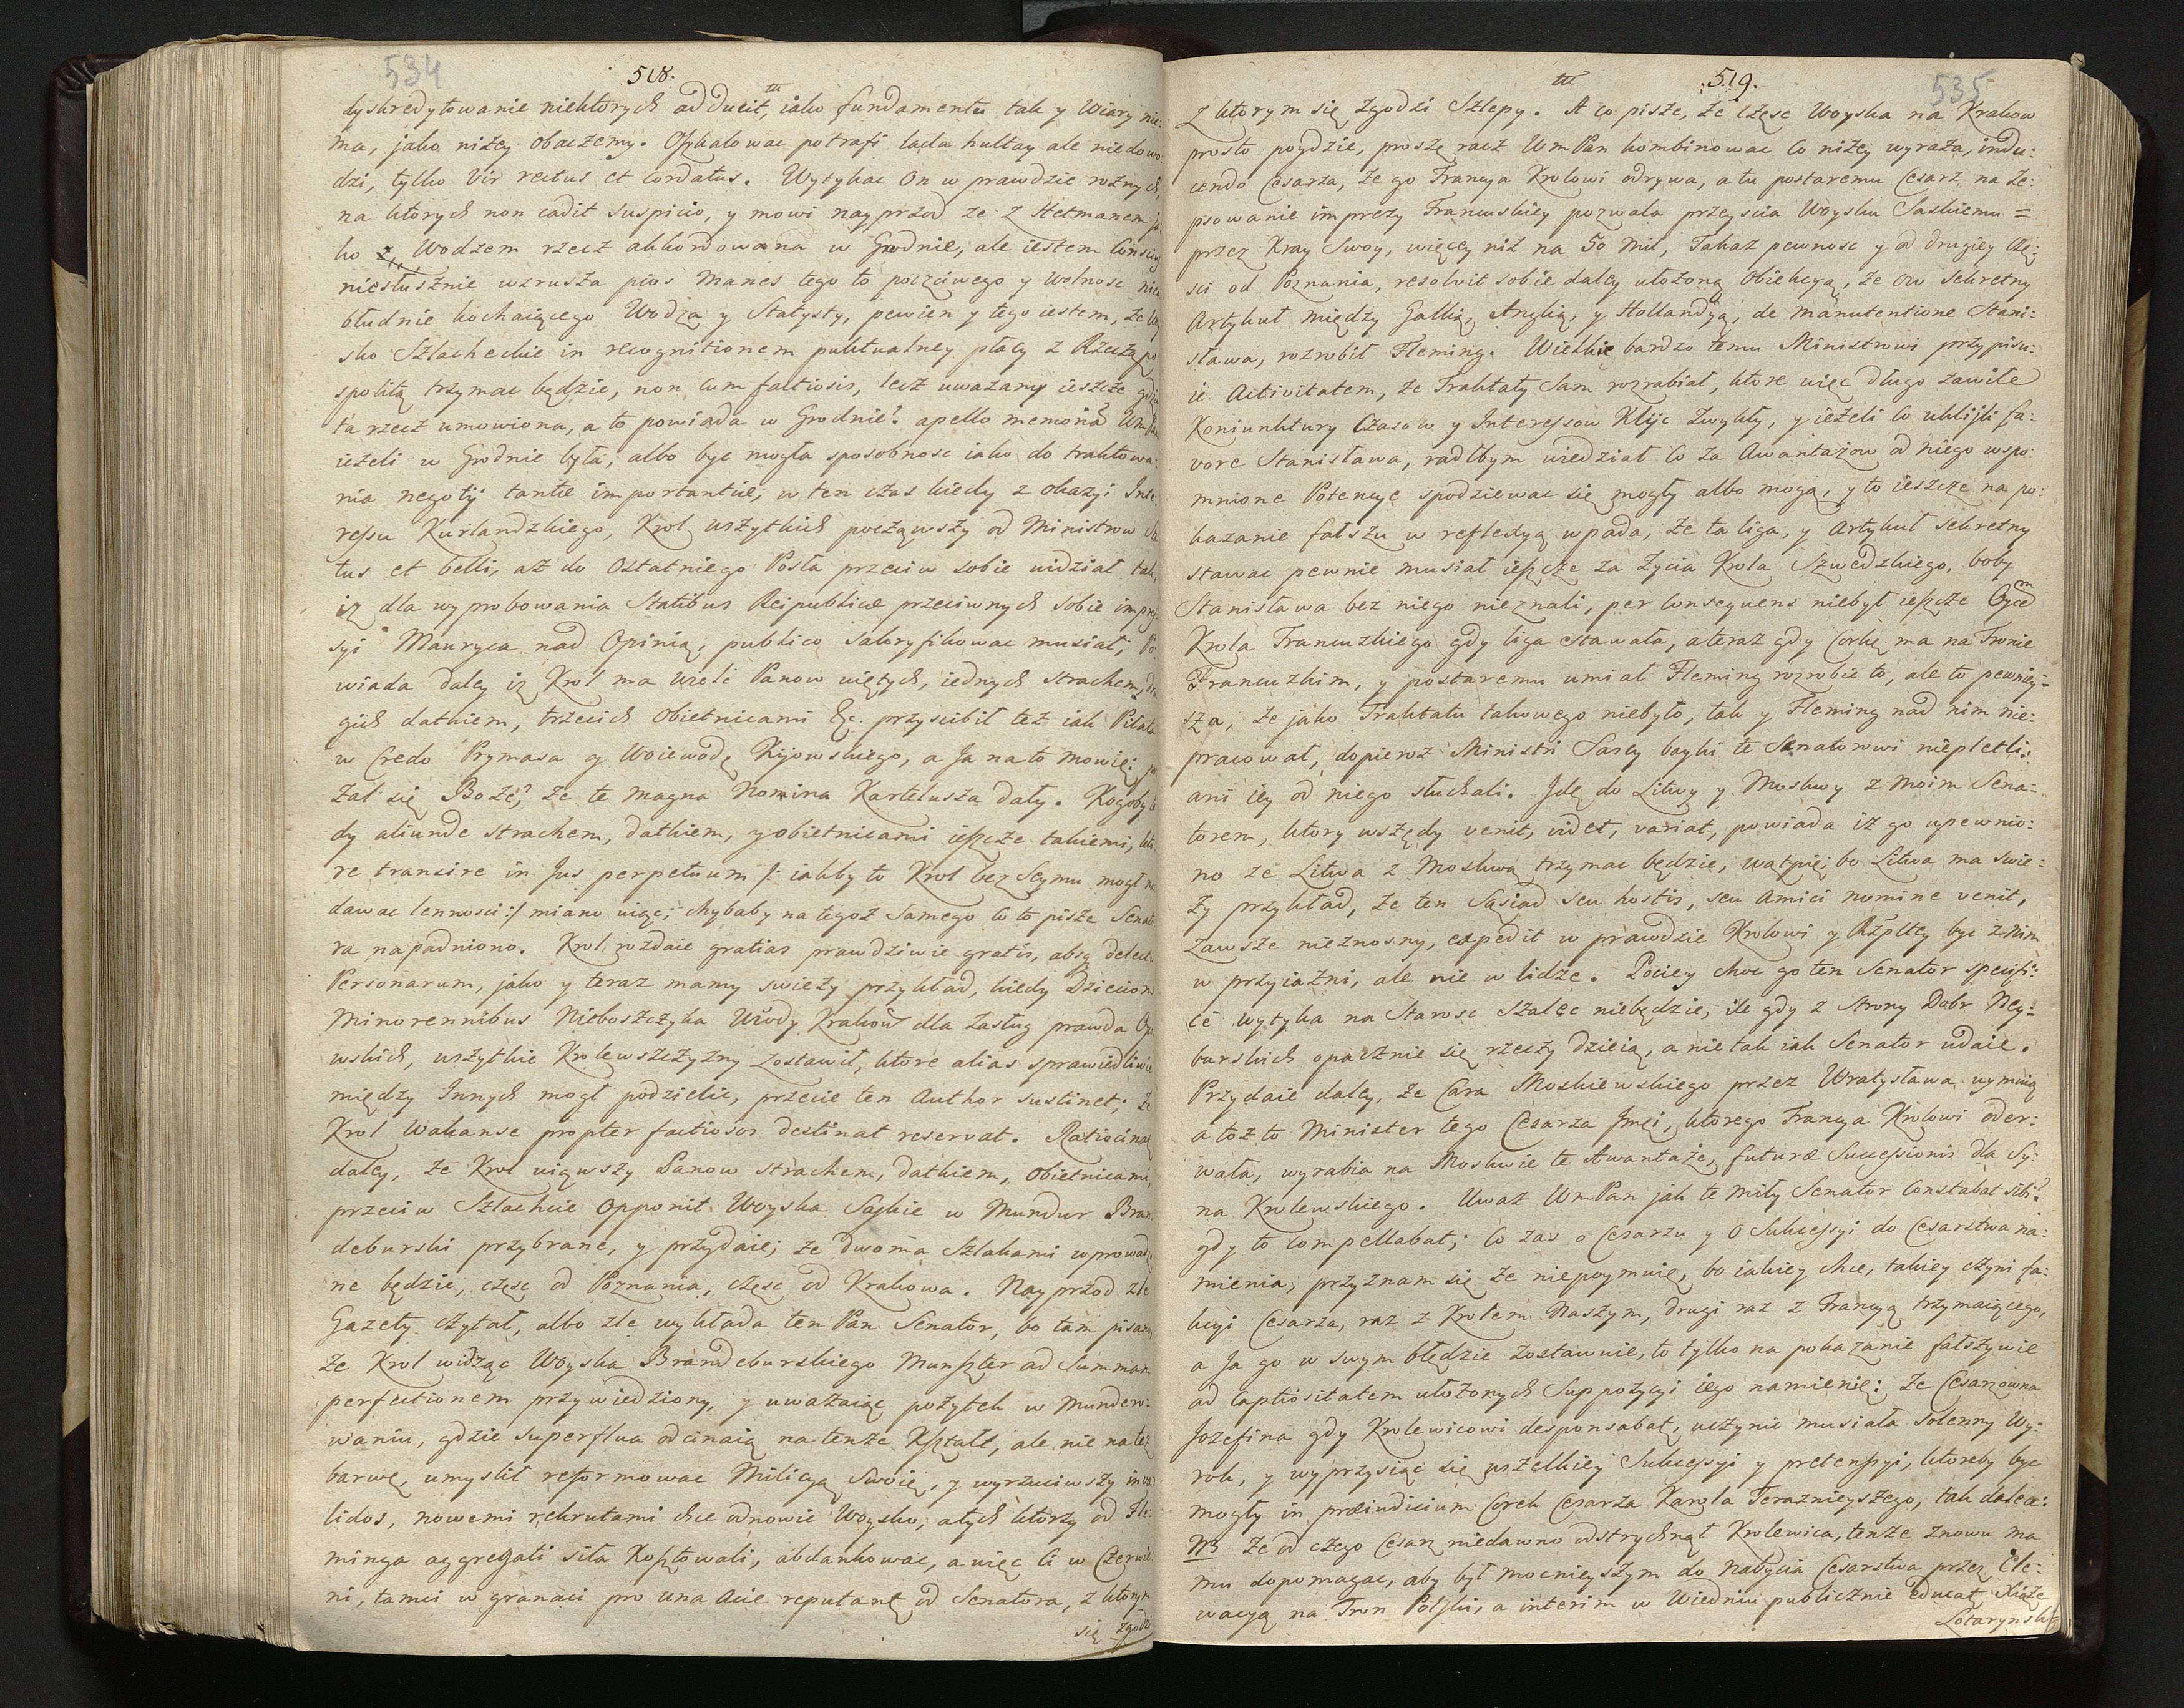 534
518.
dyskredytowanie niektorych adducit, iako fundamentu tak y Wiary nie-
ma, jako niżey obaczemy. Oszkalowac potrafi lada hultay ale niedowo-
dzi, tylko Vir rectus et cordatus. Wytykac On w prawdzie roznych,
na ktorych non cadit suspicio, y mowi nayprzod ze z Hetmanem ja
ko z Wodzem rzecz akkordowana w Grodnie, ale iestem
niesłusznie wzrusza pios Manes tego to poczciwego y Wolnosc nieo
błudnie kochaiącego Wodza y Statysty, pewien y tego iestem, że Woy
sko Szlacheckie in recognitionem puktualney płacy z Rzecząpo
spolitą trzymac będzie, non cum factiosis, lecz uwazany ieszcze gdzie
ta rzecz umowiona, a to powiada w Grodnie? apello memoriā Wm Pan
ieżeli w Grodnie była, albo byc mogła sposobnosc iako do traktowa-
nia negotÿ tantæ importantiæ, w ten czas kiedy z okazyi Inte-
ressu Kurlandzkiego, Krol wszytkich począwszy od Ministrow Sta
tus et belli, aż do Ostatniego Posła przeciw sobie widział tak,
iż dla wyprobowania Statibus Reipublicæ przeciwnych sobie impre
syi Mauryca nad Opinią publico sakryfikowac musiał; Po-
wiada daley iż Krol ma wiele Panow uiętych, iednych strachem, dru
gich datkiem, trzecich obietnicami &c. przyscibił też iak Piłata
w Credo Prymasa y Woiewodę Kijowskiego, a Ja na to mowię; po
żal się Boże, że te magna Nomina Karteluszа dały. Kogoby te
dy aliunde strachem, datkiem, y obietnicami ieszcze takiemi, kto
re transire in Jus perpetuum /: iakby to Krol bez Seymu mogł na
dawac lennosci :/ miano uiąc; chybaby na tegoż Samego co to pisze Senato
ra napadniono. Krol rozdaie gratias prawdziwie gratis, absq delectu
Personarum, jako y teraz mamy swieży przykład, kiedy Dzieciom
Minorennibus Nieboszczyka Wdy Krakow dla zasług prawda Oyco
wskich, wszytkie Krolewszczyzny zostawił, ktore alias sprawiedliwie
między Innych mogł podzielic, przecie ten Author sustinet; że
Krol Wakanse propter factiosos destinat reservat. Ratiocinat
daley, że Krol uiąwszy Panow strachem, datkiem, obietnicami,
przeciw Szlachcie opponit Woyska Saskie w Mundur Bran
deburski przybrane, y przydaie; że dwoma Szlakami wprowadzo
ne będzie, częsc od Poznania, częsc od Krakowa. Nayprzod zle
Gazety czytał, albo zle wykłada ten Pan Senator, bo tam pisano,
że Krol widząc Woyska Brandeburskiego Munszter ad summam
perfectionem przywiedziony, y uwazaiąc pożytek w Mundero-
waniu, gdzie superflua odcinaią na tenże Kształt, ale nie na też
barwę, umyslił reformowac Milicyą Swoię, y wyrzuciwszy inva
lidos, nowemi rekrutami chce odnowic Woysko, a tych ktorzy od Fle-
minga aggregati siła kosztowali, abdankowac, a więc ci w Czerwie
ni, tamci w granaci pro una acie reputant od Senatora, z ktorym
się zgodzi
535
519.
z ktorym się zgodzi Szlepy. A co pisze, że częsc Woyska na Krakow
prosto poydzie, proszę racz WmPan kombinowac co niżey wyraża, indu-
cendo Cesarza, że go Francya Krolowi odrywa, a tu postaremu Cesarz na ze-
psowanie imprezy Francuskiey pozwala przeyscia Woysku Saskiemu =
przez Kray Swoy, więcey niż na 50 Mil, Takaż pewnosc y od drugiey czę-
sci od Poznania, resolvit sobie daley ułożoną Obiekcyą, że ow sekretny
Artykuł między Gallią, Anglią, y Hollandyą, de manutentione Stani-
sława, rozrobił Fleming. Wielkie bardzo temu Ministrowi przypisu-
ie Activitatem, że Traktaty sam rozrabiał, ktore więc długo zawiłe
Koniunktury Czasow y Interessow Klijc zwykły, y ieżeli co uklijli fa-
vore Stanisława, radbym wiedział co za Awantażow od niego wspo-
mnione Potencye spodziewac się mogły albo mogą, y to ieszcze na po-
kazanie fałszu w reflexyą wpada, że ta liga, y Artykuł sekretny
stawac pewnie musiał ieszcze za Zycia Krola Szwedzkiego, boby
Stanisława bez niego nieznali, per consequens niebył ieszcze Oycem
Krola Francuzkiego gdy liga stawała, a teraz gdy Corkę ma na Tronie
Francuzkim, y postaremu umiał Fleming rozrobic to, ale to pewniey-
sza, że jako Traktatu takowego niebyło, tak y Fleming nad nim nie-
pracował, dopieroż Ministri Sascy bayki te Senatorowi niepletli,
ani iey od niego słuchali. Jdę do Litwy y Moskwy z moim Sena-
torem, ktory wszędy venit, videt, variat, powiada iż go upewnio-
no że Litwa z Moskwą trzymac będzie, wątpię; bo Litwa ma swie-
ży przykład, że ten Sąsiad seu hostis, seu amici nomine venit,
zawsze nieznosny, expedit w prawdzie Krolowi y Rzpltey byc z nim
w przyiazni, ale nie w lidze. Pociey choc go ten Senator specifi-
ce wytyka na Starosc szalec niebędzie, ile gdy z strony Dobr Ney-
burskich opacznie się rzeczy dzieią, a nie tak iak Senator udaie.
Przydaie daley, że Cara Moskiewskiego przez Wratysława uymuią
a toż to Minister tego Cesarza Jmci, ktorego Francya Krolowi oder-
wała, wyrabia na Moskwie te Awantaże, futuræ Successionis dla Sy-
na Krolewskiego. Uważ WmPan jak te miły Senator constabat sibi?
gdy to compellabat; Co zas o Cesarzu y o Sukcessyi do Cesarstwa na-
mienia, przyznam się że niepoymuię, bo iakiey chce, takiey czyni fa-
kcyi Cesarza, raz z Krolem Naszym, drugi raz z Francyą trzymaiącego,
a Ja go w swym błędzie zostawuie, to tylko na pokazanie fałszywie
ad captiositatem ułożonych Suppozycyi iego namienię: że Cesarzowna
Jozefina gdy Krolewicowi desponsabat, uczynic musiała solenny Wy-
rok, y wyprzysiąc się wszelkiey Sukcessyi y pretensyi, ktoreby byc
mogły in præiudicium Corek Cesarza Karola Terazniejszego, tak dalece:
NB że od czego Cesarz niedawno odstrychnął Krolewica, tenże znowu ma
mu dopomagac, aby był mocnieyszym do nabycia Cesarstwa przez Ele-
wacyą na Tron Polski, a interim w Wiedniu publicznie educat Xiąże
Lotarynski